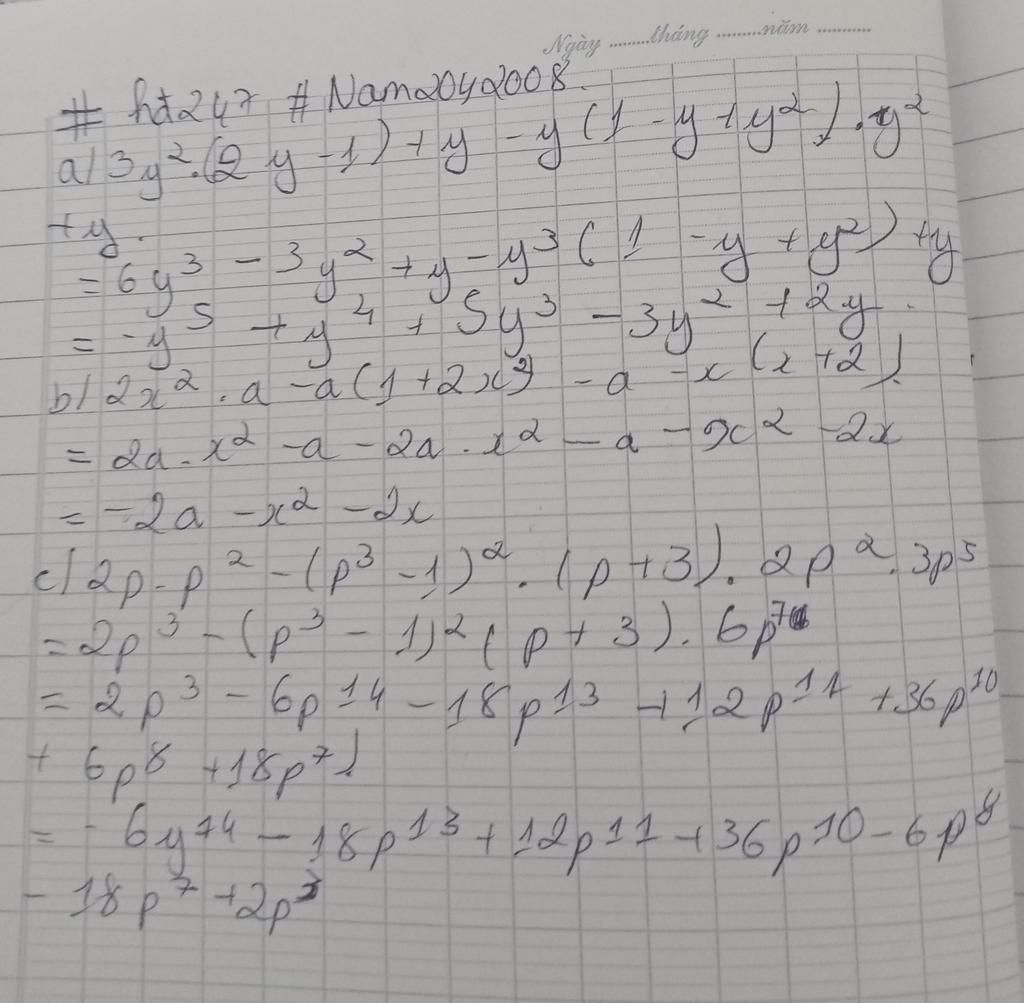 Ngày ........tháng .........năm ...........
# hđ247 #Nam2042008.
a) 3y².(2y-1)+y-y(1-y+y²).y²
+y.
=6y³-3y²+y-y³(1-y+y²)+y
=-y⁵+y⁴+5y³-3y²+2y.
b) 2x².a-a(1+2x²)-a-x(x+2).
=2a.x²-a-2a.x²-a-x²-2x
=-2a-x²-2x
c) 2p.p²-(p³-1)².(p+3).2p².3p⁵
=2p³-(p³-1)²(p+3).6p⁷
=2p³-6p¹⁴-18p¹³+12p¹¹+36p¹⁰
+6p⁸+18p⁷)
=-6y¹⁴-18p¹³+12p¹¹+36p¹⁰-6p⁸
-18p⁷+2p³